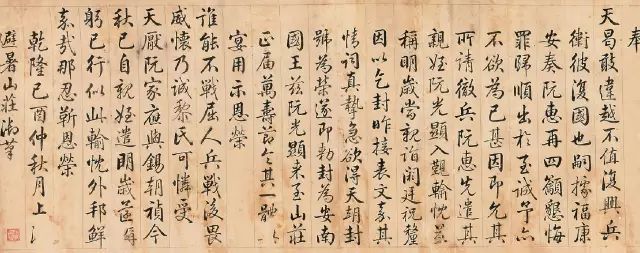 奉
天曷敢違越不值復興兵
衛彼復國也嗣據福康
安奏阮惠再四籲懇悔
罪歸順出於至誠予亦
不欲為已甚因即允其
所請徹兵阮惠先遣其
親姪阮光顯入觐輸忱並
稱明歲當親詣闕廷祝釐
因以乞封昨接表文嘉其
情詞真摯急欲得天朝封
號為榮遂即勅封為安南
國王玆阮光顯來至山莊
正届萬壽節令其一體
宴用示恩榮
誰能不戰屈人兵戰後畏
威懷乃誠黎民可憐受
天厭阮家應與錫朝禎今
秋已自親姪遣明歲還看
躬己行似此輸忱外邦鮮
嘉哉那忍靳恩榮
乾隆己酉仲秋月上
避暑山莊御筆